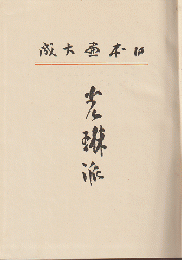 日本畫大成
光琳派